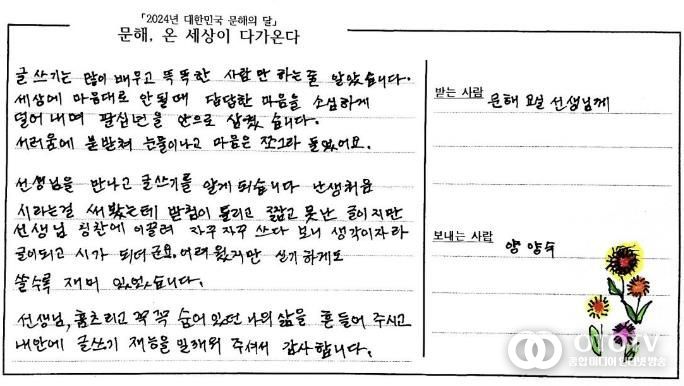 「2024년 대한민국 문해의 달」
문해, 온 세상이 다가온다
글쓰기는 많이 배우고 똑똑한 사람만 하는줄 알았습니다.
세상에 마음대로 안될때 답답한 마음을 소심하게
덜어내며 팔십년을 안으로 삼켰습니다.
서러움에 북받쳐 눈물이나고 마음은 쪼그라 들었어요.
선생님을 만나고 글쓰기를 알게 되습니다 난생처음
시라는걸 써봤는데 받침이 틀리고 짧고 못난 글이지만
선생님 칭찬에 이끌려 자꾸자꾸 쓰다 보니 생각이자라
글이되고 시가 되더군요. 어려웠지만 신기하게도
쓸수록 재미 있었습니다.
선생님, 움츠리고 꼭꼭 숨어있던 나의 삶을 흔들어 주시고
내안에 글쓰기 재능을 일깨워 주셔서 감사합니다.
받는 사람
문해 교실 선생님께
보내는 사람
양양숙
종합미디어 인터넷 방송